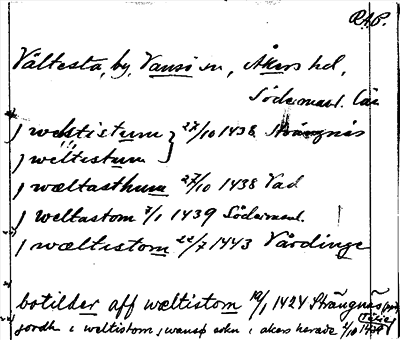 RAP.
Vältesta, by, Vansö sn, Åkers hd,
Södermanl. län
j weltistum } 27/10 1438 Strängnäs
j weltestum
j wæltasthum 27/10 1438 Vad
j weltastom 7/1 1439 Södermanl.
j wæltistom 22/7 1443 Vårdinge
botilder aff wæltistom 12/1 1424 Strängnäs
jordh i weltistom j wansø sokn i akers herade 2/10 1438